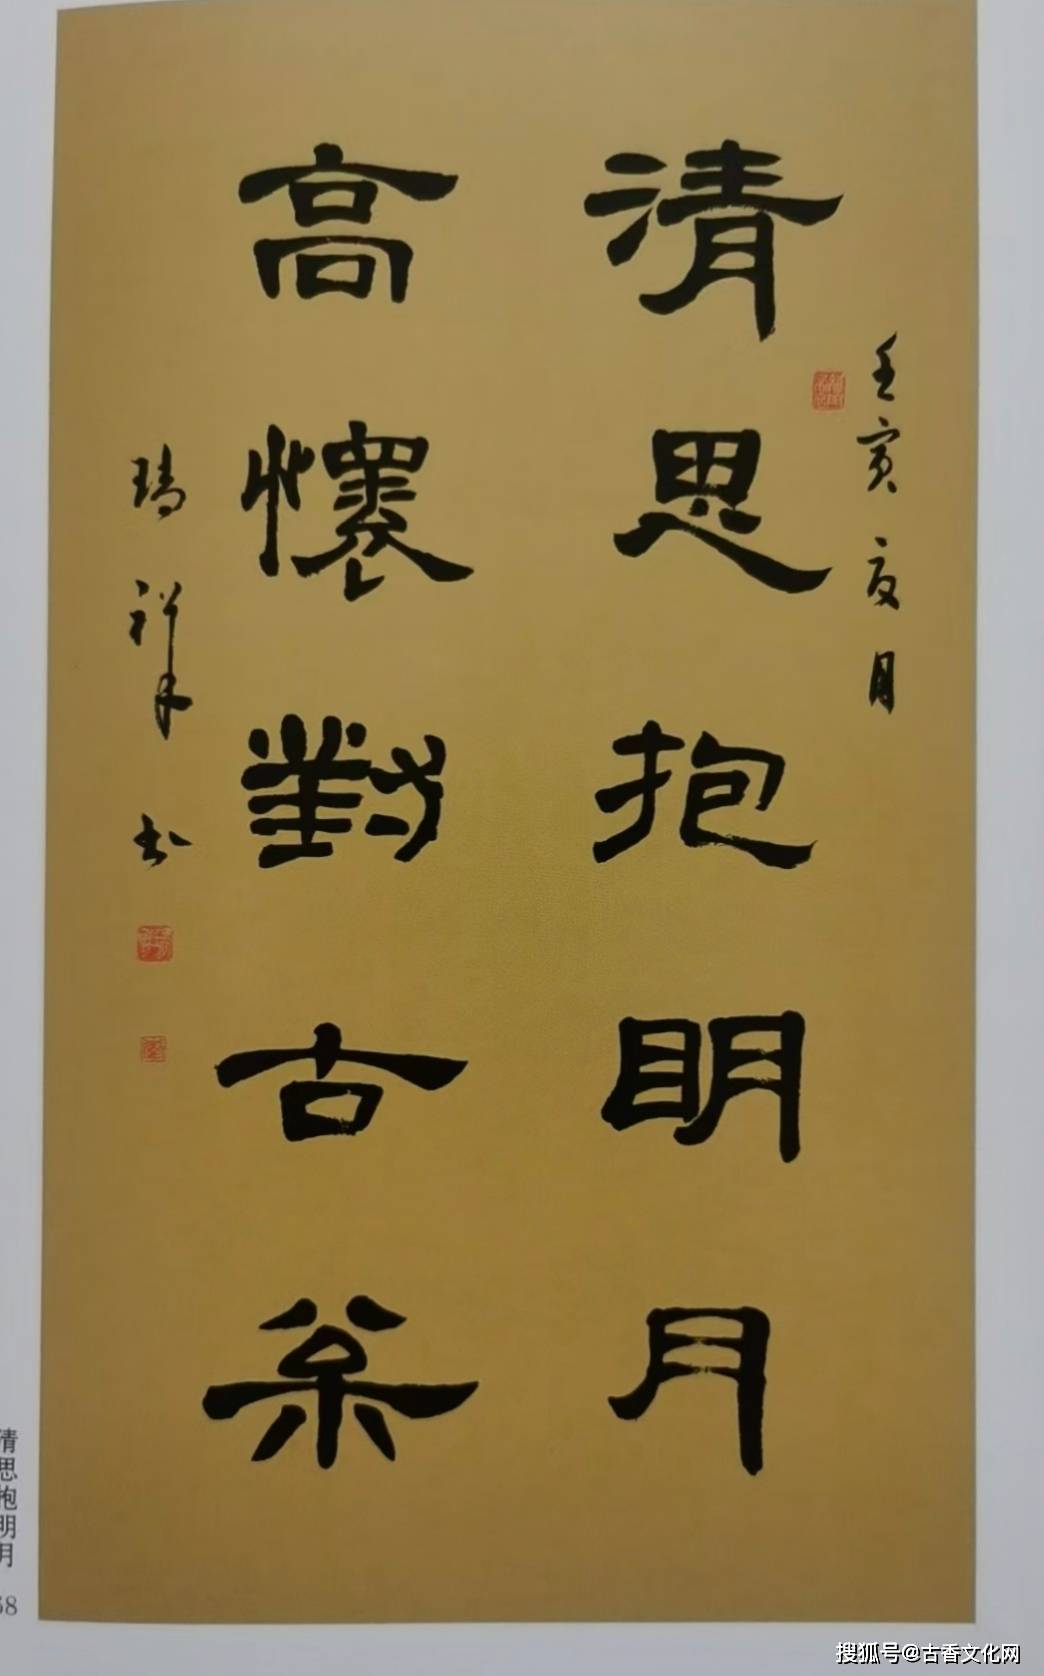 壬寅夏月
清思抱明月
高懷對古枀
瑞祥书
清思抱明月
搜狐号@古香文化网